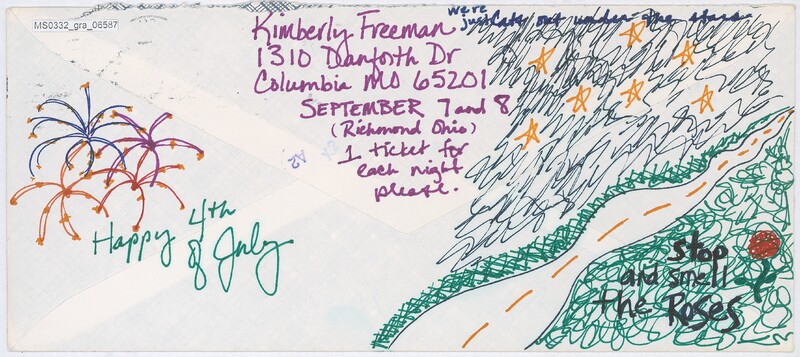 MS0332_gra_06587
Kimberly Freeman
1310 Danforth Dr
Columbia MO 65201
SEPTEMBER 7 and 8
(Richmond Ohio)
1 ticket for
each night
please.
A2
we're
just Cats out under the stars
Happy 4th
of July
Stop
and smell
the Roses